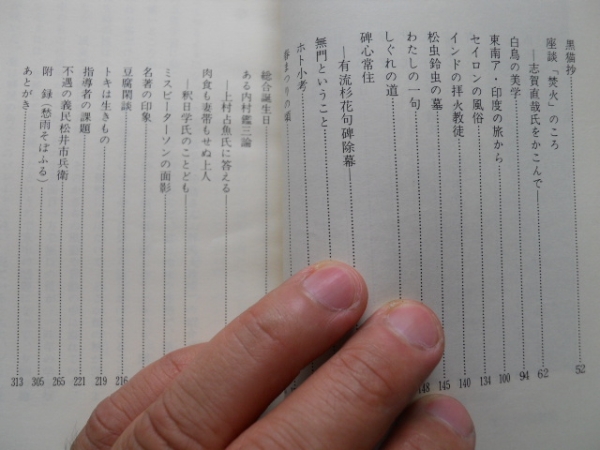 黒猫抄 52
座談「焚火」のころ
―志賀直哉氏をかこんで― 62
白鳥の美学 94
東南ア・印度の旅から 100
セイロンの風俗 134
インドの拝火教徒 140
松虫鈴虫の墓 145
わたしの一句 148
しぐれの道
碑心常住
―有流杉花句碑除幕
無門ということ
ホト小考
春まつりの頃
総合誕生日
ある内村鑑三論
―上村占魚氏に答える
肉食も妻帯もせぬ上人
―釈日学氏のことども
ミスピーターソンの面影
名著の印象
豆腐閑談 216
トキは生きもの 219
指導者の課題 221
不遇の義民松井市兵衛 265
附録(愁雨そばふる) 305
あとがき 313